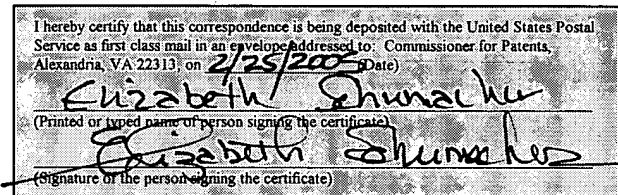 I hereby certify that this correspondence is being deposited with the United States Postal
Service as first class mail in an envelope addressed to: Commissioner for Patents,
Alexandria, VA 22313, on 2/25/2005 (Date)
Elizabeth Schumacher
(Printed or typed name of person signing the certificate)
Elizabeth Schumacher
(Signature of the person signing the certificate)